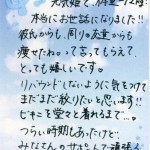 本当にお世話になりました!!
彼氏からも、周りの友達からも
痩せたねって言ってもらえて、
とっても嬉しいです。
リバウンドしないように気をつけて
まだまだ絞りたいと思います!!
ビキニを堂々と着れるまで…。
つらい時期もあったけど、
みなさんのサポートで頑張れ